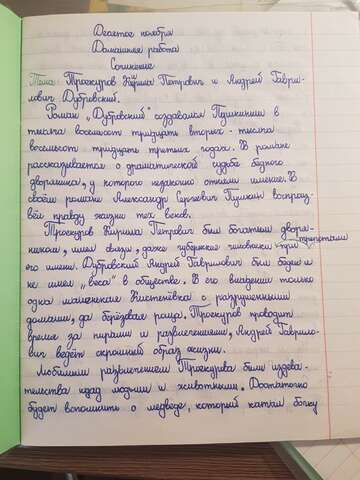 Десятое ноября
Домашняя работа
Сочинение
Тема: Троекуров Кирила Петрович и Андрей Гаври-
лович Дубровский.
Роман „Дубровский" создавался Пушкиным в
тысяча восемьсот тридцать вторых - тысяча
восемьсот тридцать третьих годах. В романе
рассказывается о драматической судьбе бедного
дворянина, у которого незаконно отняли имение. В
своём романе Александр Сергеевич Пушкин воспроиз-
вёл правду жизни тех веков.
Троекуров Кирила Петрович был богатым дворя-
нином, имел связи, даже губернские чиновники при трепетали
его имени. Дубровский Андрей Гаврилович был беден и
не имел „веса" в обществе. В его владении только
одна маленькая Кистенёвка с разрушенными
домами, да берёзовая роща. Троекуров проводит
время за пирами и развлечениями, Андрей Гаврило-
вич ведёт скромный образ жизни.
Любимым развлечением Троекурова были издева-
тельства над людьми и животными. Достаточно
будет вспомнить о медведе, который катал бочку